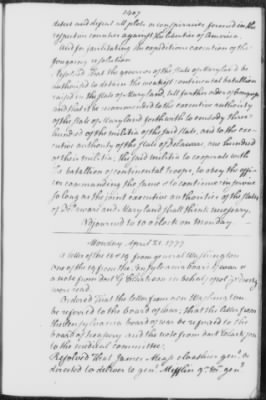 2407
detect and defeat all plots or conspiracies formed in the
respective counties against the liberties of America.
And for facilitating the expeditious execution of the
foregoing resolution
Resolved That the governor of the State of Maryland be
authorised to detain the weakest continental batallion
raised in the State of Maryland, till further orders of Congress
and that it be recommended to the executive authority
of the State of Maryland forthwith to embody three
hundred of the militia of the said State, and to the exe-
cutive authority of the State of Delaware, one hundred
of their militia; the said militia to cooperate with
batallion of continental troops, to obey the offi-
cer commanding the same & to continue in service
so long as the joint executive authorities of the States
of Delaware and Maryland shall think necessary.
Adjourned to 10 o'Clock on Monday.
Monday April 21. 1777
A letter of the 18 & 19 from general Washington
one of the 19 from the Pensylvania board of war &
a note from doct
were read.
Ordered That the letter from gen Washington
be referred to the board of war; that the letter from
the Pensylvania board of war be referred to the
board of treasury and the note from doct
to the medical committee.
Resolved That James Mease clothier genl. be
directed to deliver to genl. Mifflin qr. mr. genl